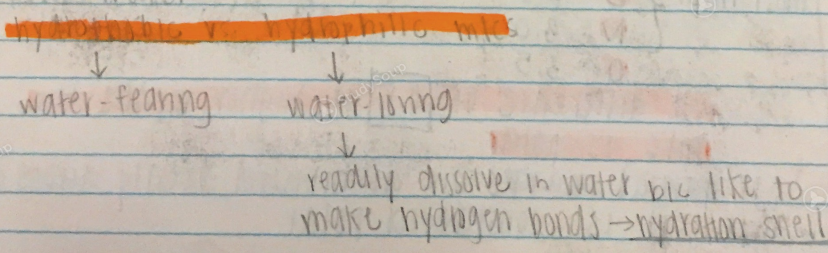 hydrophobic v. hydrophilic mlcs
↓ ↓
water-fearing water-loving
↓
readily dissolve in water b/c like to
make hydrogen bonds → hydration shell